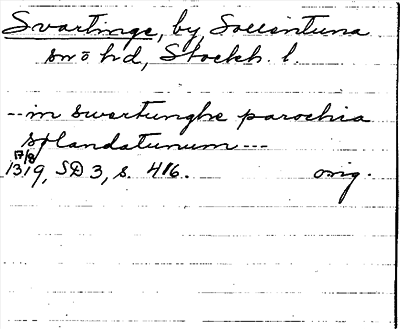 Svartinge, by, Sollentuna
sn o hd, Stockh. l.
-- in swertunghe parochia
solandatunum ---
17/8
1319, SD 3, s. 416. orig.